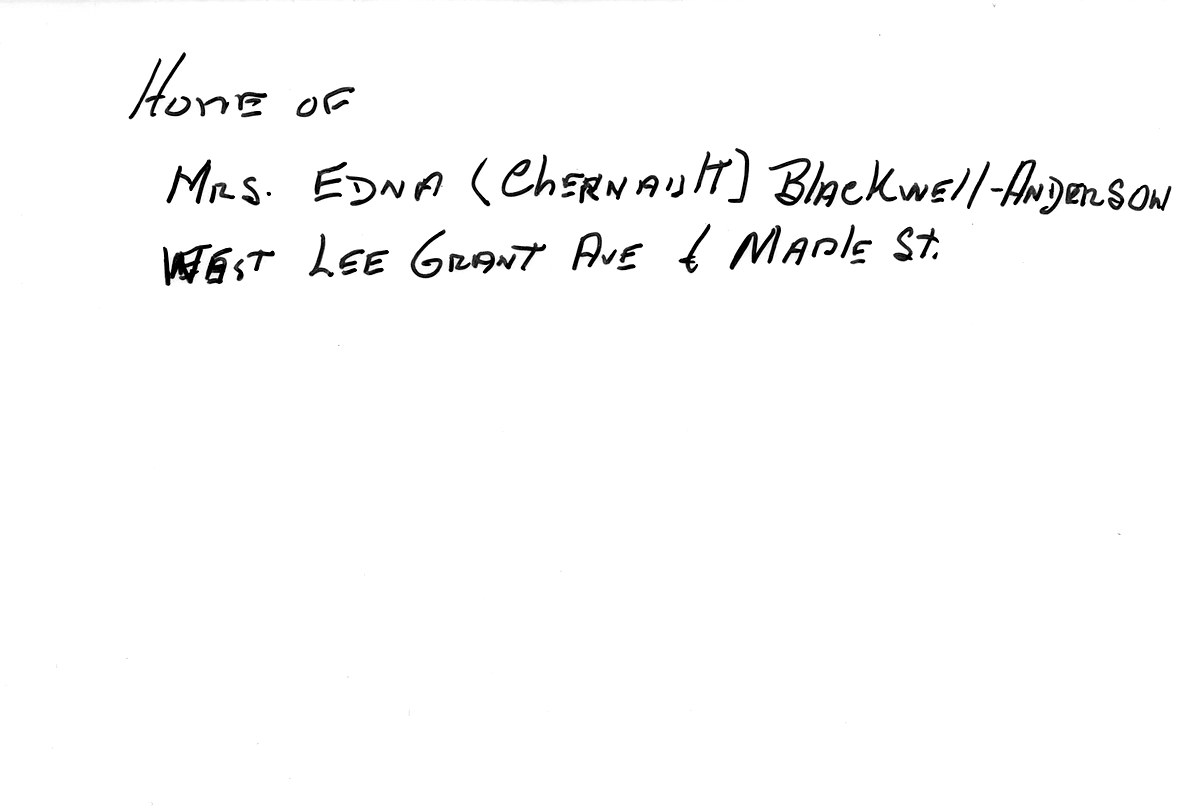 Home of
Mrs. Edna (Chernault) Blackwell-Anderson
West Lee Grant Ave & Maple St.